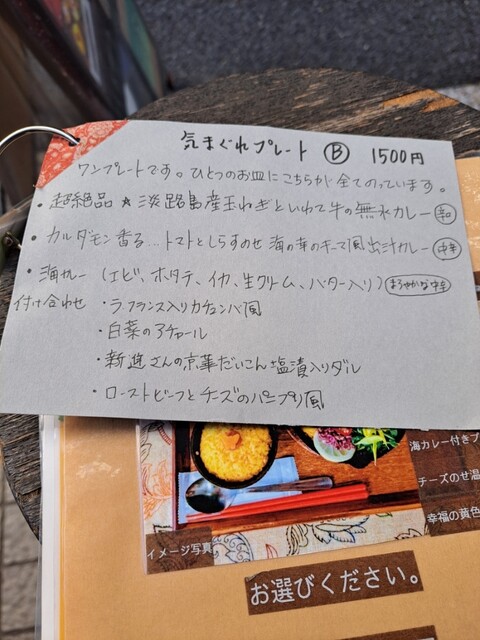 気まぐれプレート Ⓑ 1500円
ワンプレートです。ひとつのお皿にこちらが全てのっています。
・超絶品★淡路島産玉ねぎといわて牛の無水カレー 辛
・カルダモン香る…トマトとしらすのせ 海の幸のキーマ風出汁カレー 中辛
・海カレー (エビ、ホタテ、イカ、生クリーム、バター入り) まろやかな中辛
付け合わせ ・ラ・フランス入りカチュンバ風
・白菜のアチャール
・新進さんの京華だいこん塩漬入りダル
・ローストビーフとチーズのパニプリ風
海カレー付きプ
チーズのせ温
幸福の黄色
イメージ写真
お選びください。